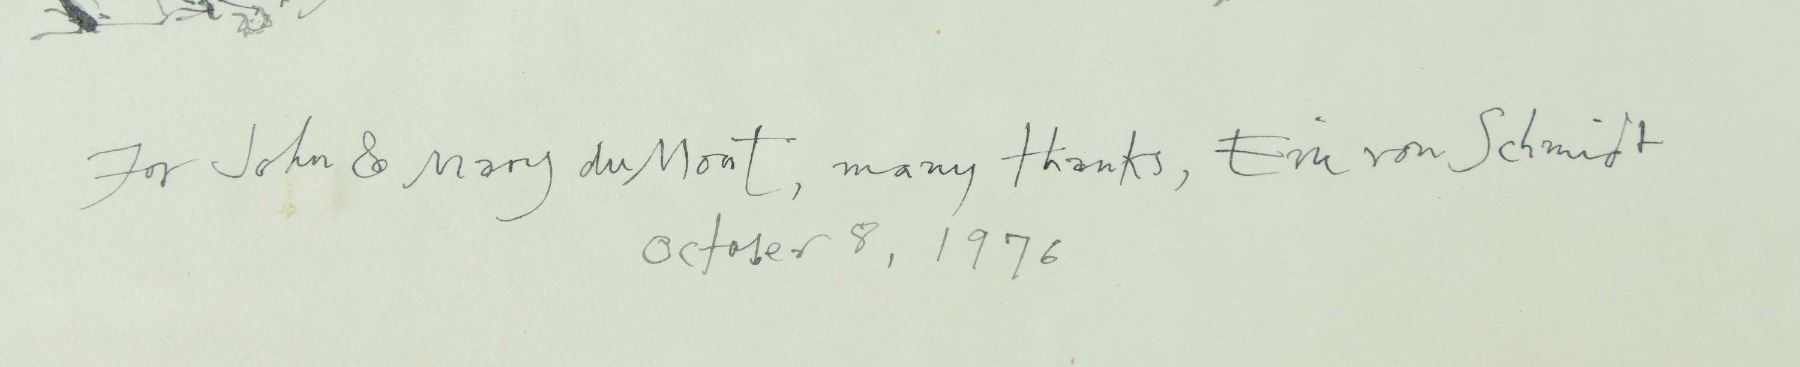 For John & Mary du Mont, many thanks, Eric von Schmidt
October 8, 1976